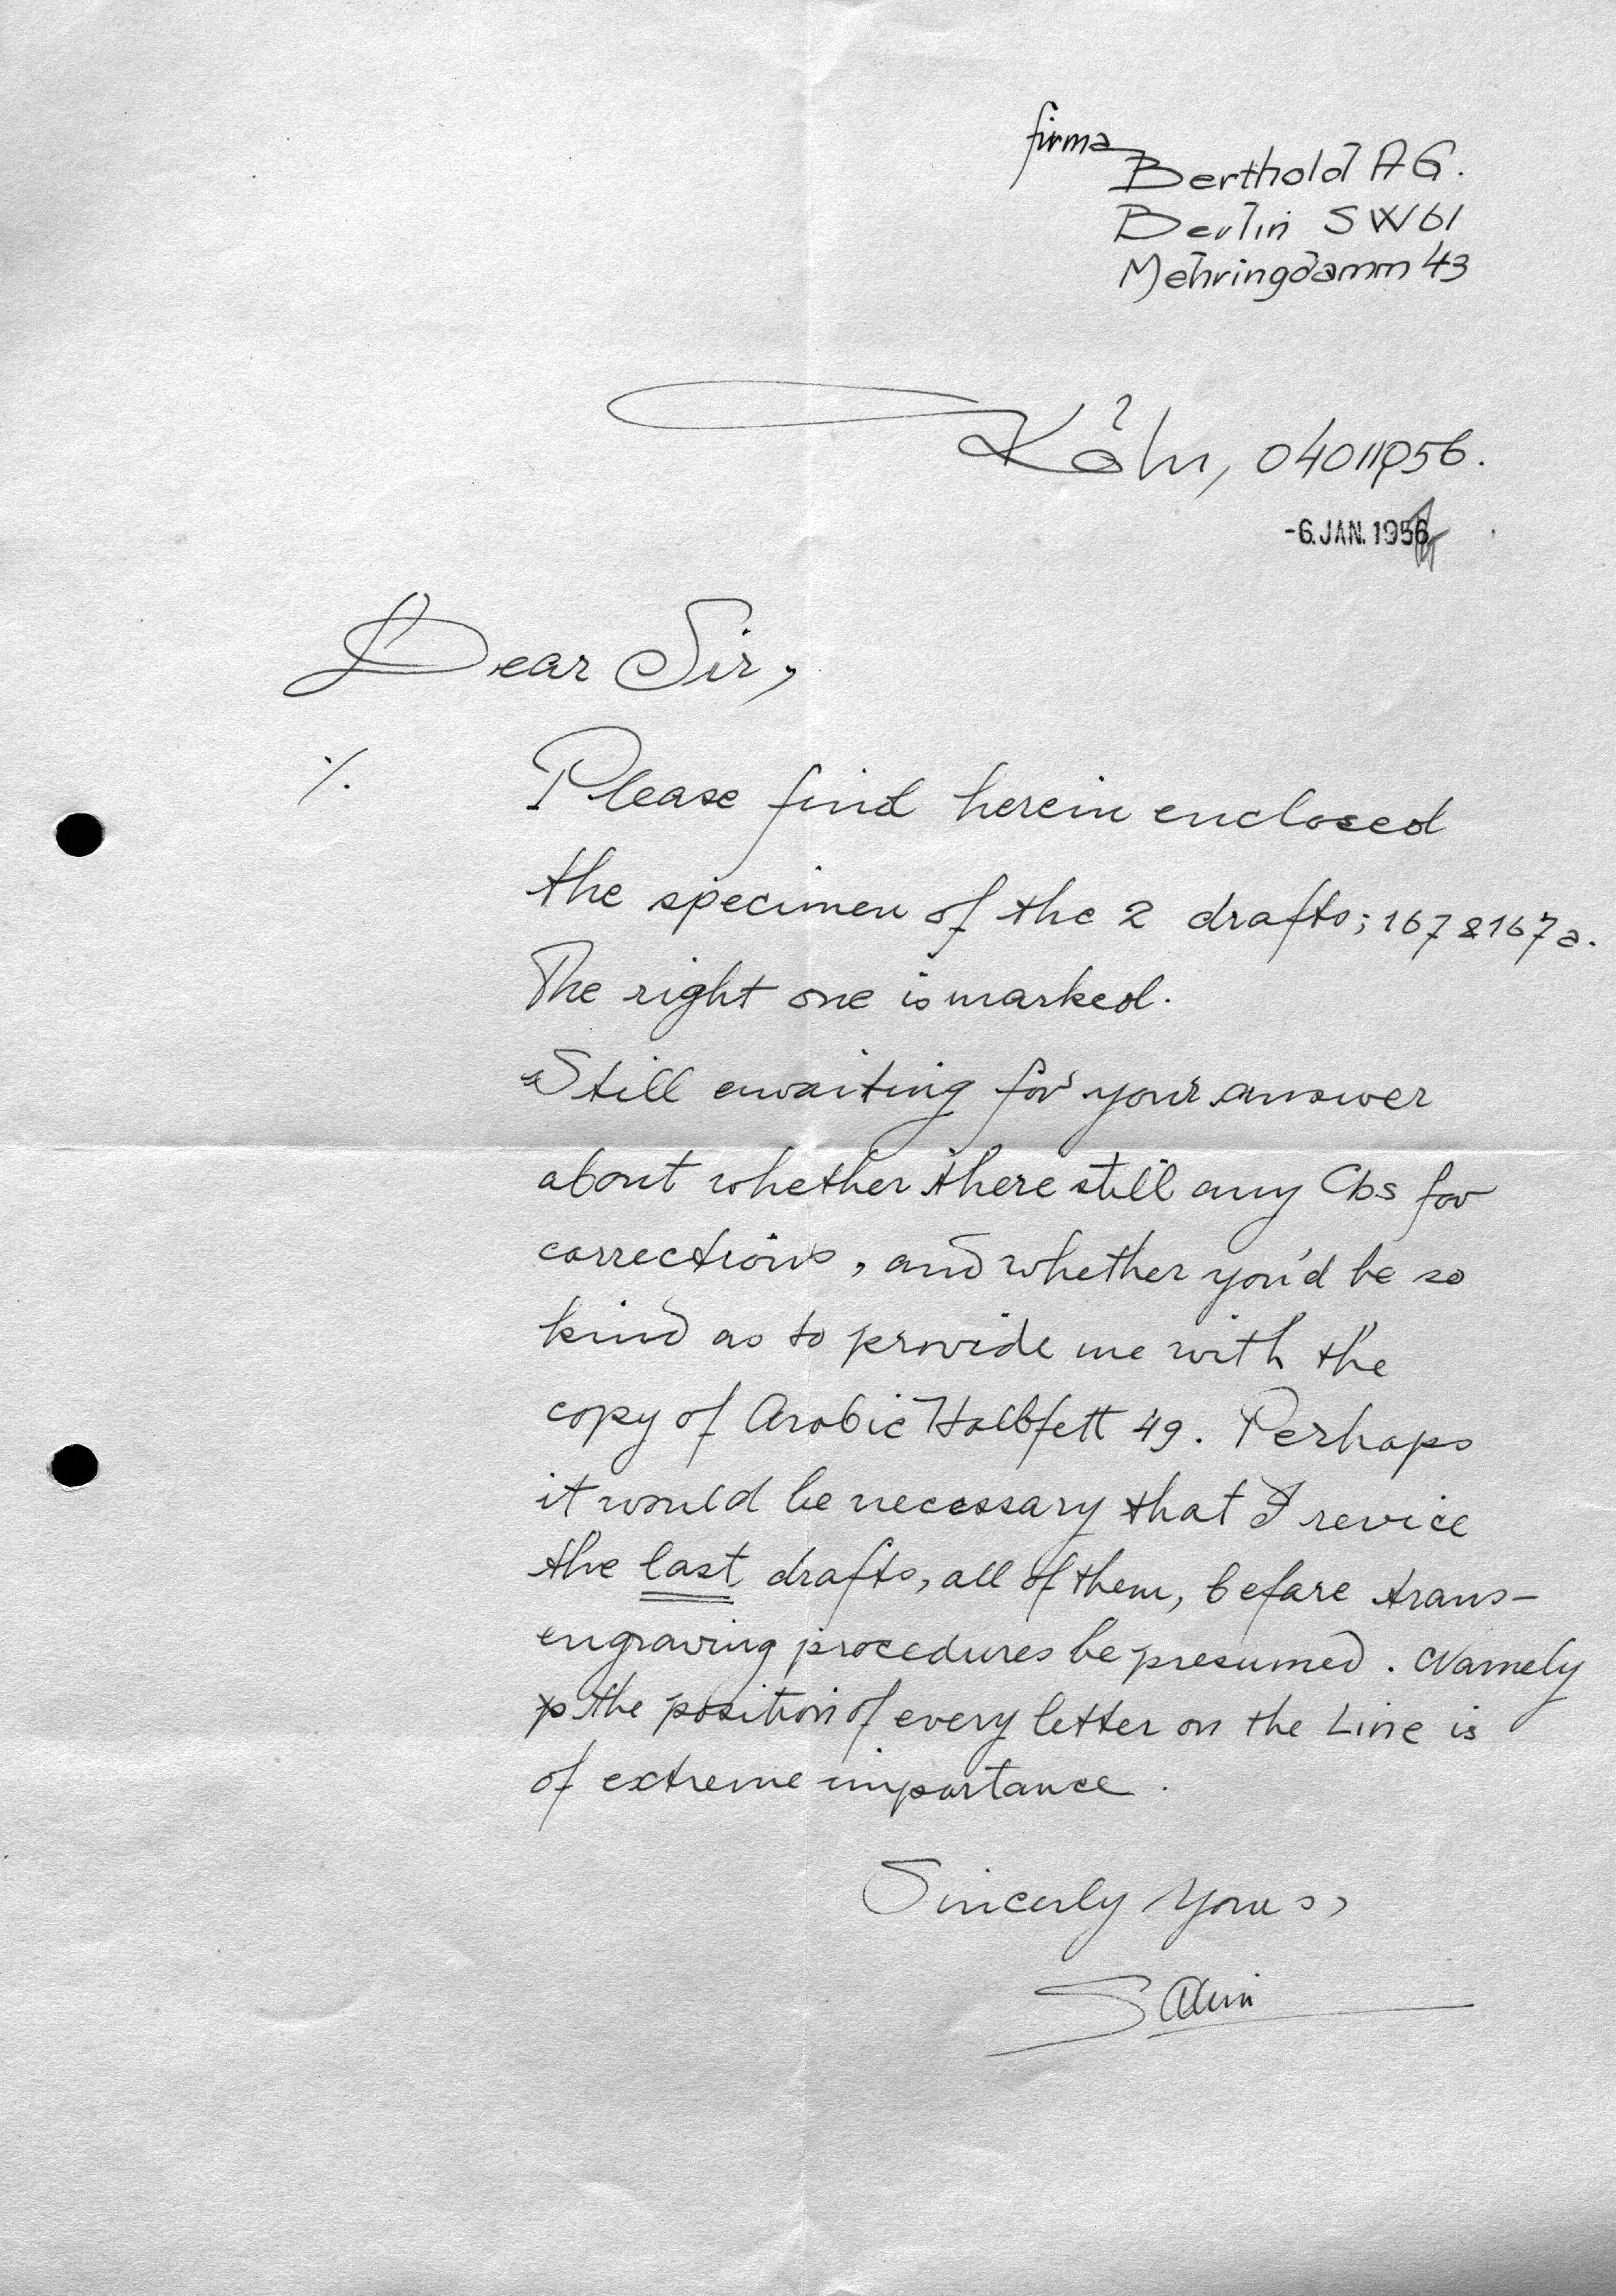 firma
Berthold AG.
Berlin SW61
Mehringdamm 43
Köln, 04011956.
-6.JAN.1956
Dear Sir,
./.
Please find herein enclosed
the specimen of the 2 drafts; 167 & 167a.
The right one is marked.
Still awaiting for your answer
about whether there still any Cbs for
corrections, and whether you'd be so
kind as to provide me with the
copy of Arabic Halbfett 49. Perhaps
it would be necessary that I revice
the last drafts, all of them, before trans-
engraving procedures be presumed. Namely
the position of every letter on the Line is
of extreme importance.
Sincerly yours,